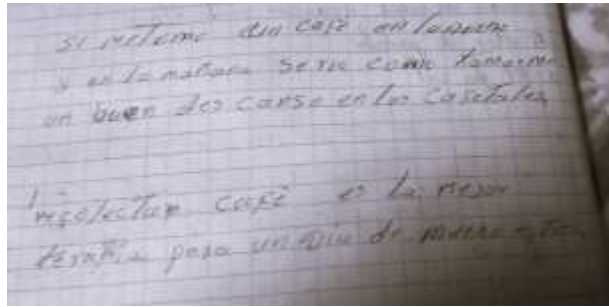 si me tomo un café en la
en la mañana seria como tomarme
un buen descanso en los cafetales
recolectar café es la mejor
terapia para un dia de mucho